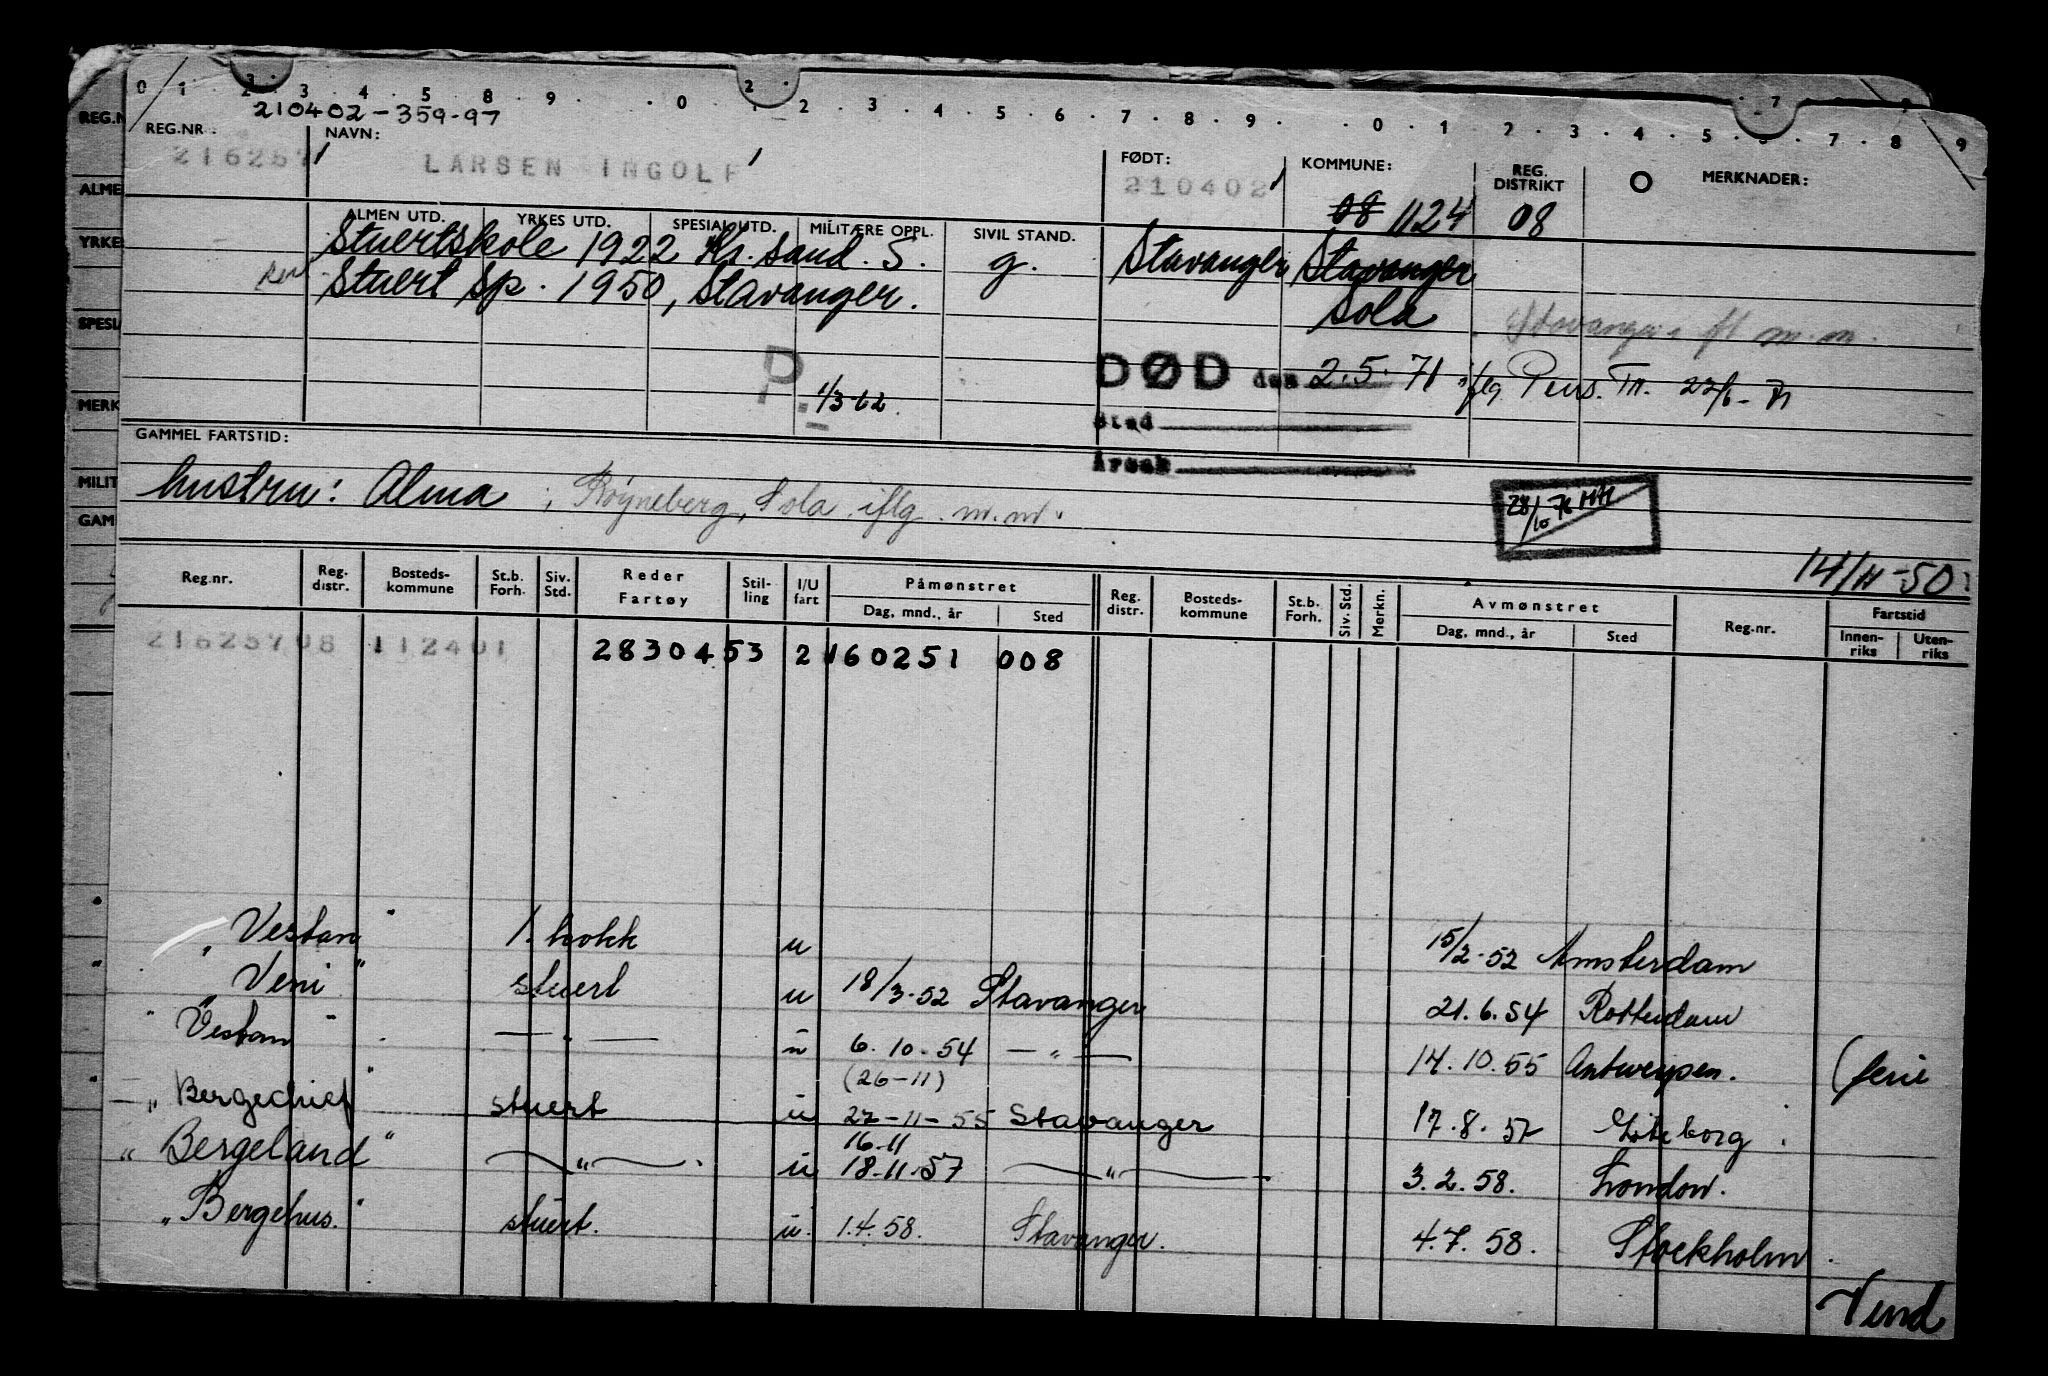 0 1 2 3 4 5 8 9 0 2 2 3 4 5 6 7 8 9 0 1 2 3 4 5 6 7 8 9
210402-359-97
REG.NR. NAVN: FØDT: KOMMUNE: REG. DISTRIKT MERKNADER:
216257 LARSEN INGOLF 210402
08 1124 08
ALMEN UTD. YRKES UTD. SPESIAL UTD. MILITÆRE OPPL. SIVIL STAND.
Stuertskole 1922 Kr.sand. S. g. Stavanger Stavanger
Stuert sp. 1950, Stavanger. Sola Stavanger fl m.m.
P. 1/3-62
DØD den 2.5.71 iflg Pens. Tr. 22/6-71
Sted
Årsak
GAMMEL FARTSTID:
hustru: Alma ; Røyneberg, Sola iflg. m.m.
28/10 76 HH
14/11-50
Reg.nr. Reg. distr. Bosteds-kommune St.b. Forh. Siv. Std. Reder Fartøy Stil-ling I/U fart Påmønstret Reg. distr. Bosteds-kommune St.b. Forh. Siv. Std. Merkn. Avmønstret Reg.nr. Fartstid
Dag, mnd., år Sted Dag, mnd., år Sted Innen-riks Uten-riks
216257 08 112401 2830453 2 160251 008
"Vestan" 1. kokk u 15/2-52 Amsterdam
"Veni" stuert u 18/3-52 Stavanger 21.6.54 Rotterdam
"Vestan" — " — u 6.10.54 — " — 14.10.55 Antwerpen. (ferie
(26-11)
"Bergechief" stuert u 27-11-55 Stavanger 17.8.57 Göteborg.
16.11
"Bergeland" — " — u 18.11.57 — " — 3.2.58. London.
"Bergehus." stuert. u. 1.4.58. Stavanger. 4.7.58. Stockholm.
Vend